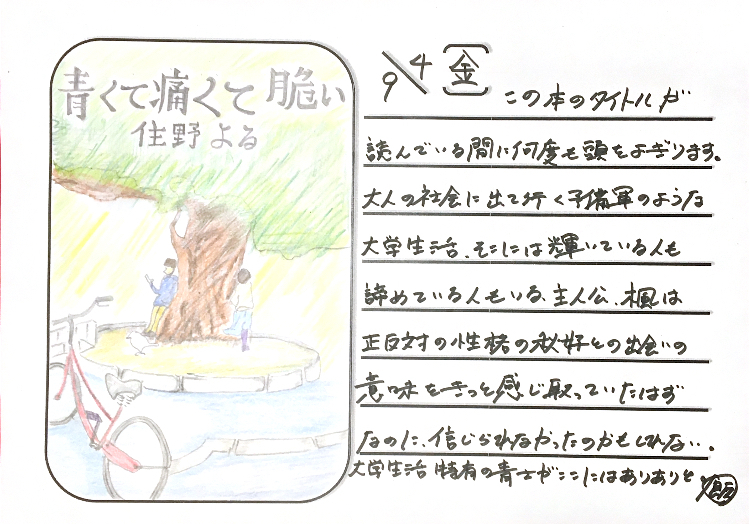 青くて痛くて脆い
住野よる
9/4 [金]
この本のタイトルが
読んでいる間に何度も頭をよぎります。
大人の社会に出て行く予備軍のような
大学生活、そこには輝いている人も
諦めている人もいる、主人公、楓は
正反対の性格の秋好との出会いの
意味をきっと感じ取っていたはず
なのに、信じられなかったのかもしれない…。
大学生活特有の青さがここにはありありと